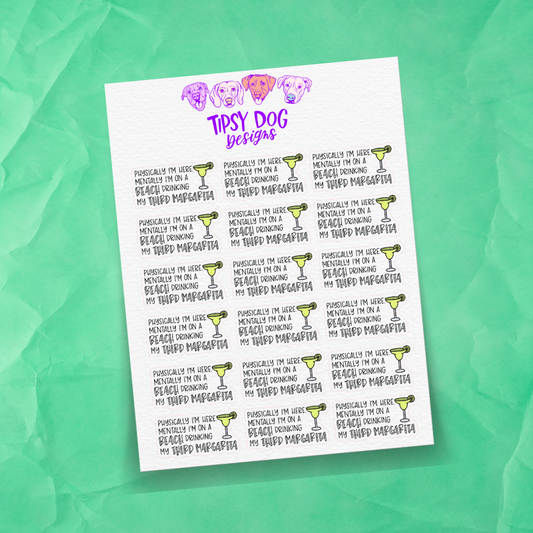 TIPSY DOG
Designs
PHYSICALLY I'M HERE
MENTALLY I'M ON A
BEACH DRINKING
MY THIRD MARGARITA
PHYSICALLY I'M HERE
MENTALLY I'M ON A
BEACH DRINKING
MY THIRD MARGARITA
PHYSICALLY I'M HERE
MENTALLY I'M ON A
BEACH DRINKING
MY THIRD MARGARITA
PHYSICALLY I'M HERE
MENTALLY I'M ON A
BEACH DRINKING
MY THIRD MARGARITA
PHYSICALLY I'M HERE
MENTALLY I'M ON A
BEACH DRINKING
MY THIRD MARGARITA
PHYSICALLY I'M HERE
MENTALLY I'M ON A
BEACH DRINKING
MY THIRD MARGARITA
PHYSICALLY I'M HERE
MENTALLY I'M ON A
BEACH DRINKING
MY THIRD MARGARITA
PHYSICALLY I'M HERE
MENTALLY I'M ON A
BEACH DRINKING
MY THIRD MARGARITA
PHYSICALLY I'M HERE
MENTALLY I'M ON A
BEACH DRINKING
MY THIRD MARGARITA
PHYSICALLY I'M HERE
MENTALLY I'M ON A
BEACH DRINKING
MY THIRD MARGARITA
PHYSICALLY I'M HERE
MENTALLY I'M ON A
BEACH DRINKING
MY THIRD MARGARITA
PHYSICALLY I'M HERE
MENTALLY I'M ON A
BEACH DRINKING
MY THIRD MARGARITA
PHYSICALLY I'M HERE
MENTALLY I'M ON A
BEACH DRINKING
MY THIRD MARGARITA
PHYSICALLY I'M HERE
MENTALLY I'M ON A
BEACH DRINKING
MY THIRD MARGARITA
PHYSICALLY I'M HERE
MENTALLY I'M ON A
BEACH DRINKING
MY THIRD MARGARITA
PHYSICALLY I'M HERE
MENTALLY I'M ON A
BEACH DRINKING
MY THIRD MARGARITA
PHYSICALLY I'M HERE
MENTALLY I'M ON A
BEACH DRINKING
MY THIRD MARGARITA
PHYSICALLY I'M HERE
MENTALLY I'M ON A
BEACH DRINKING
MY THIRD MARGARITA